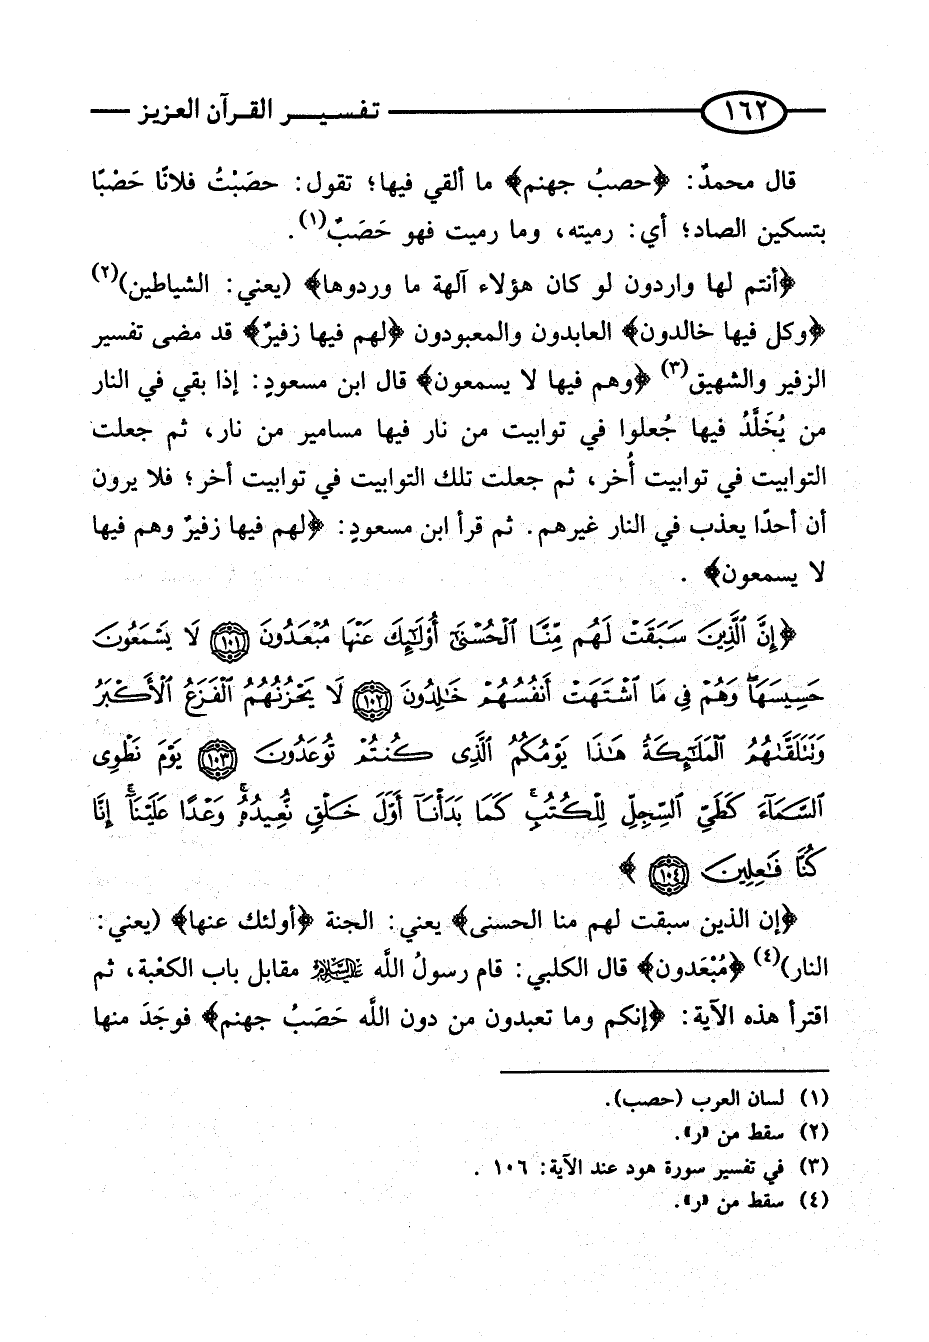 ١٦٢ تفسير القرآن العزيز
قال محمدٌ: ﴿حصبُ جهنم﴾ ما ألقي فيها؛ تقول: حصَبْتُ فلانًا حَصْبًا
بتسكين الصاد؛ أي: رميته، وما رميت فهو حَصَبٌ(١).
﴿أنتم لها واردون لو كان هؤلاء آلهة ما وردوها﴾ (يعني: الشياطين)(٢)
﴿وكل فيها خالدون﴾ العابدون والمعبودون ﴿لهم فيها زفيرٌ﴾ قد مضى تفسير
الزفير والشهيق(٣) ﴿وهم فيها لا يسمعون﴾ قال ابن مسعودٍ: إذا بقي في النار
من يُخَلَّدُ فيها جُعلوا في توابيت من نار فيها مسامير من نار، ثم جعلت
التوابيت في توابيت أُخر، ثم جعلت تلك التوابيت في توابيت أخر؛ فلا يرون
أن أحدًا يعذب في النار غيرهم. ثم قرأ ابن مسعودٍ: ﴿لهم فيها زفيرٌ وهم فيها
لا يسمعون﴾ .
﴿إِنَّ ٱلَّذِينَ سَبَقَتْ لَهُم مِّنَّا ٱلْحُسْنَىٰٓ أُو۟لَٰٓئِكَ عَنْهَا مُبْعَدُونَ ١٠١ لَا يَسْمَعُونَ
حَسِيسَهَا ۖ وَهُمْ فِى مَا ٱشْتَهَتْ أَنفُسُهُمْ خَٰلِدُونَ ١٠٢ لَا يَحْزُنُهُمُ ٱلْفَزَعُ ٱلْأَكْبَرُ
وَتَتَلَقَّىٰهُمُ ٱلْمَلَٰٓئِكَةُ هَٰذَا يَوْمُكُمُ ٱلَّذِى كُنتُمْ تُوعَدُونَ ١٠٣ يَوْمَ نَطْوِى
ٱلسَّمَآءَ كَطَىِّ ٱلسِّجِلِّ لِلْكُتُبِ ۚ كَمَا بَدَأْنَآ أَوَّلَ خَلْقٍ نُّعِيدُهُۥ ۚ وَعْدًا عَلَيْنَآ ۚ إِنَّا
كُنَّا فَٰعِلِينَ ١٠٤ ﴾
﴿إن الذين سبقت لهم منا الحسنى﴾ يعني: الجنة ﴿أولئك عنها﴾ (يعني:
النار)(٤) ﴿مُبْعَدون﴾ قال الكلبي: قام رسولُ اللَّه عليه السلام مقابل باب الكعْبة، ثم
اقترأ هذه الآية: ﴿إنكم وما تعبدون من دون اللَّه حَصَبُ جهنم﴾ فوجَدَ منها
(١) لسان العرب (حصب).
(٢) سقط من «ر».
(٣) في تفسير سورة هود عند الآية: ١٠٦ .
(٤) سقط من «ر».